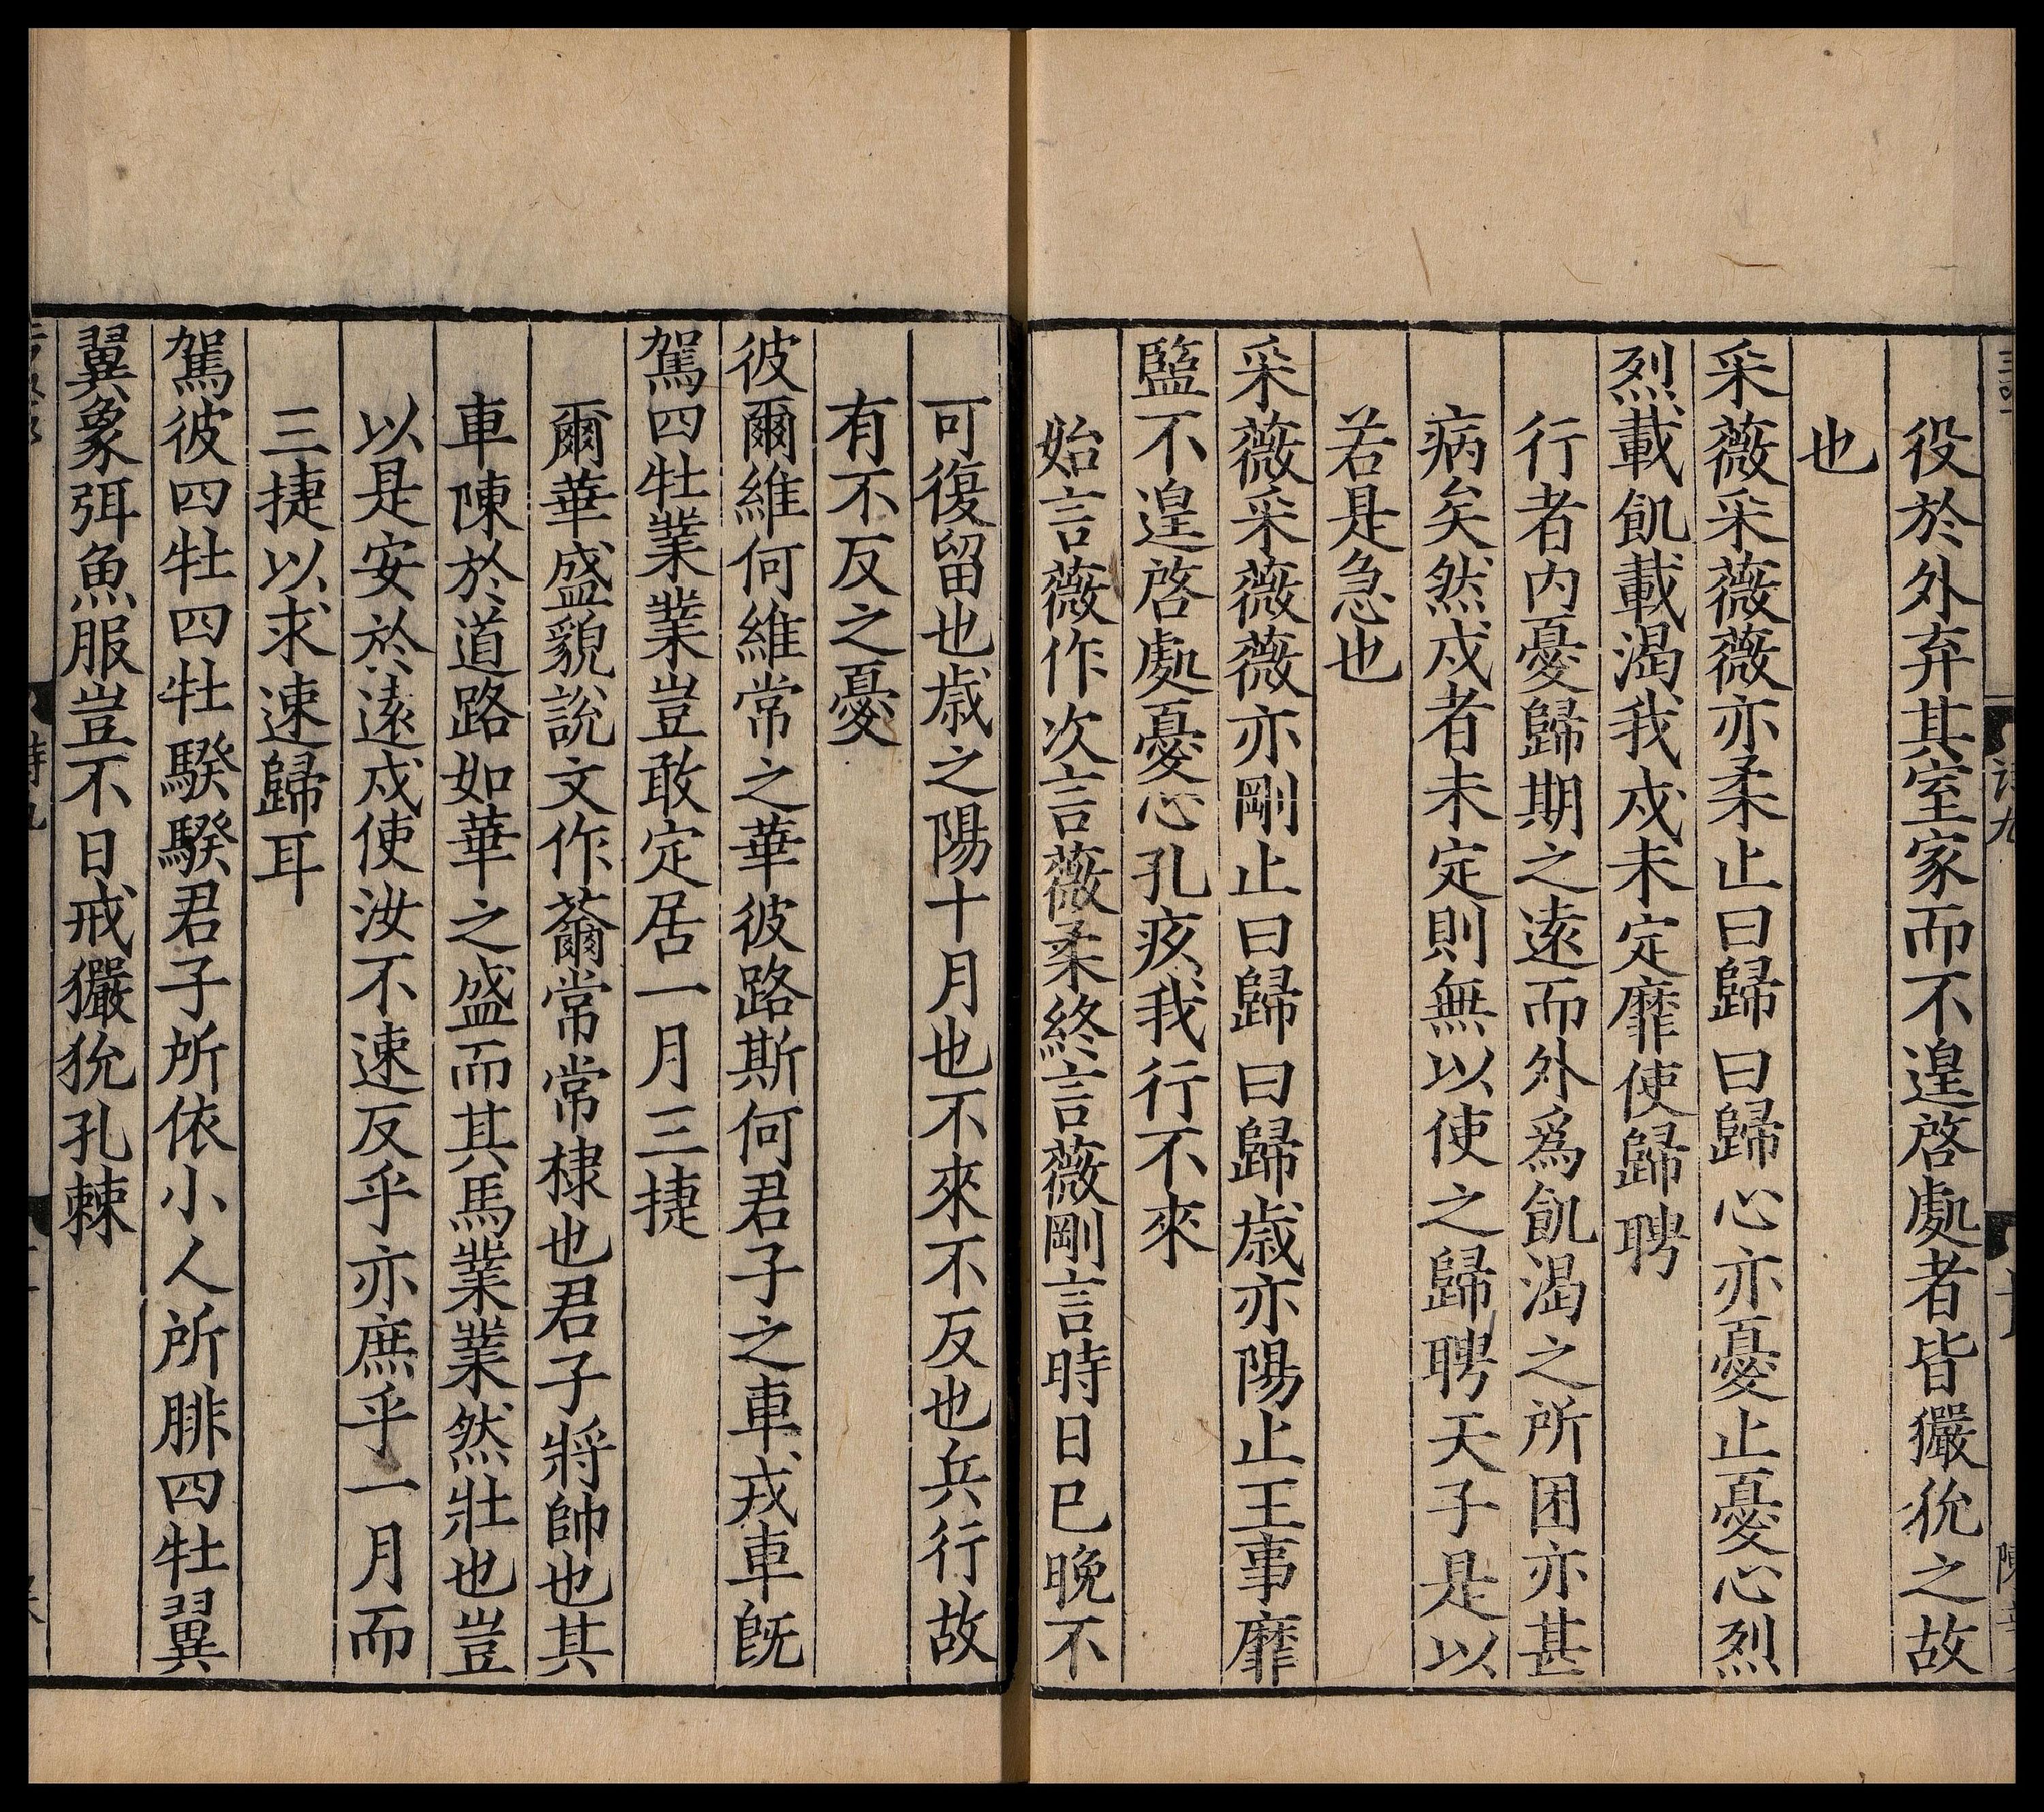 役於外弃其室家而不遑啓處者皆玁狁之故
也
采薇采薇薇亦柔止曰歸曰歸心亦憂止憂心烈
烈載飢載渴我戍未定靡使歸聘
行者内憂歸期之遠而外爲飢渴之所困亦甚
病矣然戍者未定則無以使之歸聘天子是以
若是急也
采薇采薇薇亦剛止曰歸曰歸歲亦陽止王事靡
盬不遑啓處憂心孔疚我行不來
始言薇作次言薇柔終言薇剛言時日已晚不
可復留也歲之陽十月也不來不反也兵行故
有不反之憂
彼爾維何維常之華彼路斯何君子之車戎車旣
駕四牡業業豈敢定居一月三捷
爾華盛貌說文作薾常常棣也君子將帥也其
車陳於道路如華之盛而其馬業業然壯也豈
以是安於遠戍使汝不速反乎亦庶乎一月而
三捷以求速歸耳
駕彼四牡四牡騤騤君子所依小人所腓四牡翼
翼象弭魚服豈不日戒玁狁孔棘